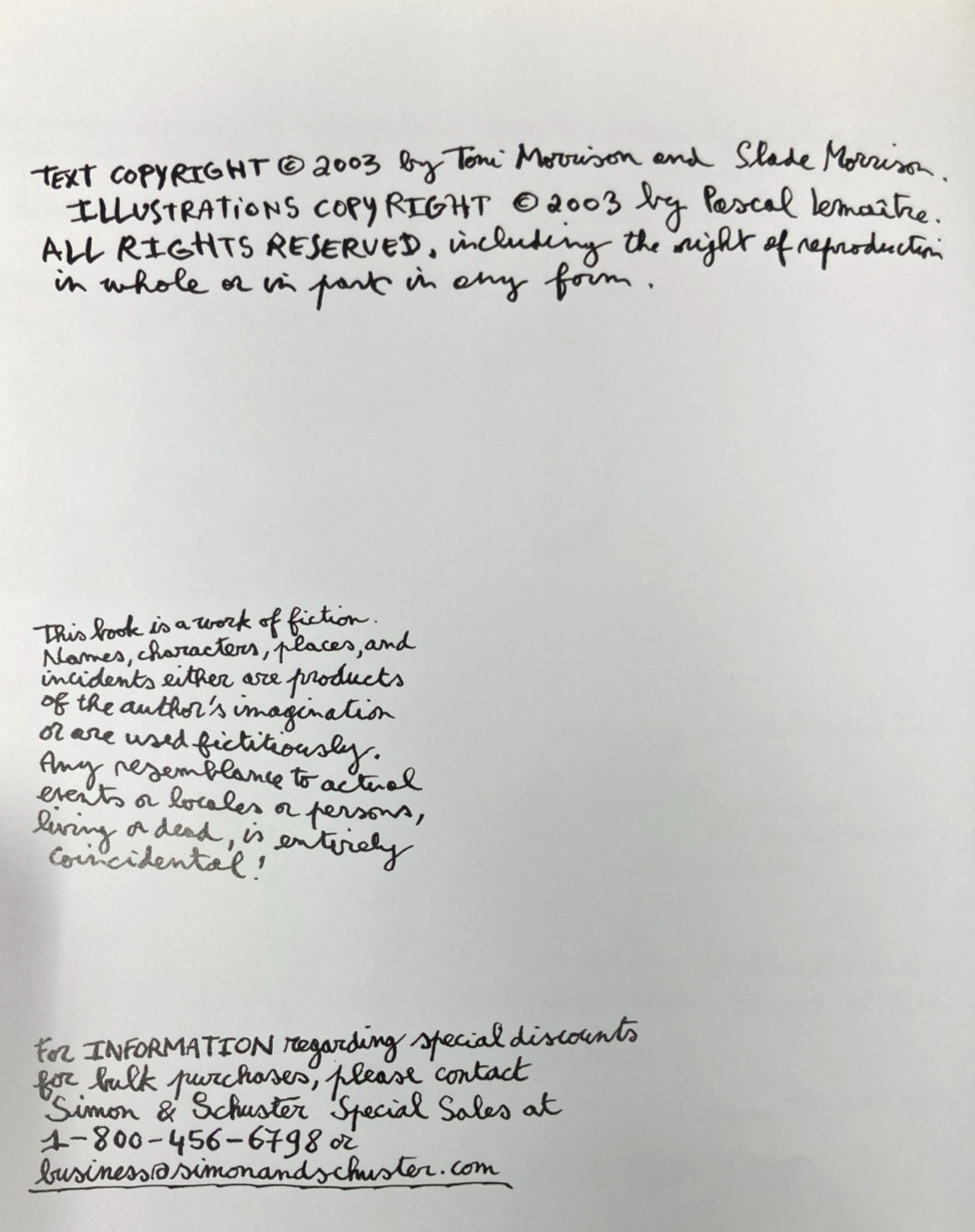 TEXT COPYRIGHT © 2003 by Toni Morrison and Slade Morrison.
ILLUSTRATIONS COPYRIGHT © 2003 by Pascal Lemaître.
ALL RIGHTS RESERVED, including the right of reproduction
in whole or in part in any form.
This book is a work of fiction.
Names, characters, places, and
incidents either are products
of the author's imagination
or are used fictitiously.
Any resemblance to actual
events or locales or persons,
living or dead, is entirely
coincidental!
For INFORMATION regarding special discounts
for bulk purchases, please contact
Simon & Schuster Special Sales at
1-800-456-6798 or
business@simonandschuster.com